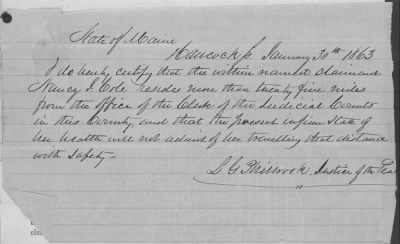 State of Maine
Hancock ss. January 30th 1863
I do hereby certify that the within named claimant
Nancy J. Cole resides more than twenty five miles
from the office of the Clerk of the Judicial Courts
in this County, and that the present infirm state of
her health will not admit of her travelling that distance
with safety—
L. G. Philbrook, Justice of the Pea